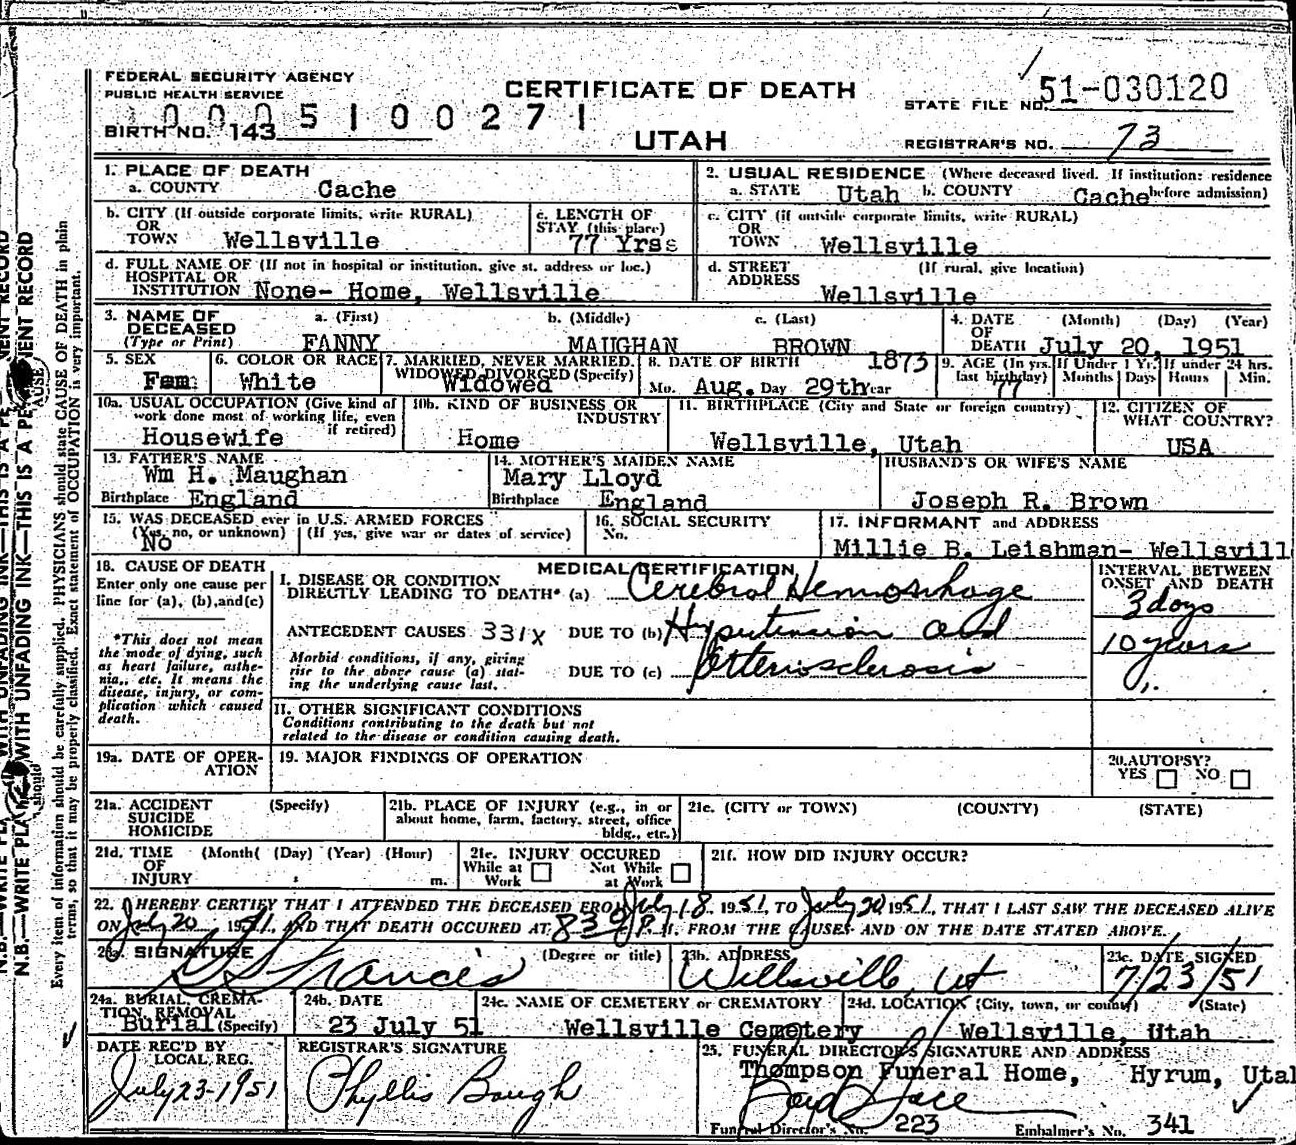 FEDERAL SECURITY AGENCY
PUBLIC HEALTH SERVICE
CERTIFICATE OF DEATH
STATE FILE NO. 51-030120
0005100271
BIRTH NO. 143
UTAH
REGISTRAR'S NO. 73
1. PLACE OF DEATH
a. COUNTY Cache
2. USUAL RESIDENCE (Where deceased lived. If institution: residence before admission)
a. STATE Utah b. COUNTY Cache
b. CITY (If outside corporate limits, write RURAL) OR TOWN Wellsville
c. LENGTH OF STAY (this place) 77 Yrss
c. CITY (if outside corporate limits, write RURAL) OR TOWN Wellsville
d. FULL NAME OF (If not in hospital or institution, give st. address or loc.) HOSPITAL OR INSTITUTION None- Home, Wellsville
d. STREET ADDRESS (If rural, give location) Wellsville
3. NAME OF DECEASED (Type or Print)
a. (First) FANNY
b. (Middle) MAUGHAN
c. (Last) BROWN
4. DATE OF DEATH (Month) (Day) (Year) July 20, 1951
5. SEX Fem
6. COLOR OR RACE White
7. MARRIED, NEVER MARRIED, WIDOWED, DIVORCED (Specify) Widowed
8. DATE OF BIRTH 1873
Mo. Aug. Day 29th Year
9. AGE (In yrs. last birthday) 77
If Under 1 Yr. Months Days
If under 24 hrs. Hours Min.
10a. USUAL OCCUPATION (Give kind of work done most of working life, even if retired) Housewife
10b. KIND OF BUSINESS OR INDUSTRY Home
11. BIRTHPLACE (City and State or foreign country) Wellsville, Utah
12. CITIZEN OF WHAT COUNTRY? USA
13. FATHER'S NAME Wm H. Maughan
Birthplace England
14. MOTHER'S MAIDEN NAME Mary Lloyd
Birthplace England
HUSBAND'S OR WIFE'S NAME Joseph R. Brown
15. WAS DECEASED ever in U.S. ARMED FORCES
(Yes, no, or unknown) (If yes, give war or dates of service)
No
16. SOCIAL SECURITY No.
17. INFORMANT and ADDRESS
Millie B. Leishman- Wellsvill
18. CAUSE OF DEATH
Enter only one cause per line for (a), (b), and (c)
*This does not mean the mode of dying, such as heart failure, asthenia, etc. It means the disease, injury, or complication which caused death.
MEDICAL CERTIFICATION
INTERVAL BETWEEN ONSET AND DEATH
I. DISEASE OR CONDITION DIRECTLY LEADING TO DEATH* (a) Cerebral Hemorrhage
3 days
ANTECEDENT CAUSES 331X DUE TO (b) Hypertension and
10 years
Morbid conditions, if any, giving rise to the above cause (a) stating the underlying cause last.
DUE TO (c) Arteriosclerosis
II. OTHER SIGNIFICANT CONDITIONS
Conditions contributing to the death but not related to the disease or condition causing death.
19a. DATE OF OPERATION
19. MAJOR FINDINGS OF OPERATION
20. AUTOPSY?
YES NO
21a. ACCIDENT SUICIDE HOMICIDE (Specify)
21b. PLACE OF INJURY (e.g., in or about home, farm, factory, street, office bldg., etc.)
21c. (CITY or TOWN) (COUNTY) (STATE)
21d. TIME OF INJURY (Month( (Day) (Year) (Hour) m.
21e. INJURY OCCURED
While at Work Not While at Work
21f. HOW DID INJURY OCCUR?
22. I HEREBY CERTIFY THAT I ATTENDED THE DECEASED FROM July 18, 1951, TO July 20, 1951, THAT I LAST SAW THE DECEASED ALIVE
ON July 20 1951, AND THAT DEATH OCCURED AT 839 P. M. FROM THE CAUSES AND ON THE DATE STATED ABOVE.
23a. SIGNATURE (Degree or title) Francis
23b. ADDRESS Wellsville, Ut
23c. DATE SIGNED 7/23/51
24a. BURIAL, CREMATION, REMOVAL (Specify) Burial
24b. DATE 23 July 51
24c. NAME OF CEMETERY or CREMATORY Wellsville Cemetery
24d. LOCATION (City, town, or county) (State) Wellsville, Utah
DATE REC'D BY LOCAL REG. July 23-1951
REGISTRAR'S SIGNATURE Phyllis Baugh
25. FUNERAL DIRECTOR'S SIGNATURE AND ADDRESS
Thompson Funeral Home, Hyrum, Utah
Funeral Director's No. 223 Embalmer's No. 341
N.B.—WRITE PLAINLY WITH UNFADING INK—THIS IS A PERMANENT RECORD
Every item of information should be carefully supplied. PHYSICIANS should state CAUSE OF DEATH in plain
terms, so that it may be properly classified. Exact statement of OCCUPATION is very important.